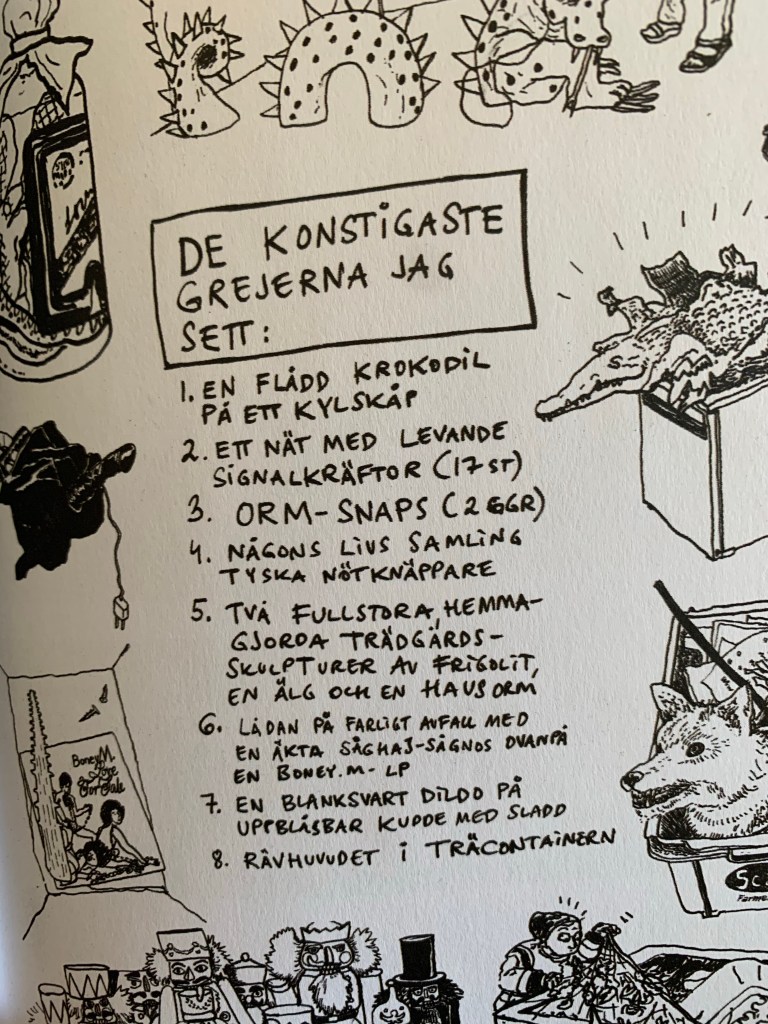 DE KONSTIGASTE
GREJERNA JAG
SETT:
1. EN FLÅDD KROKODIL
PÅ ETT KYLSKÅP
2. ETT NÄT MED LEVANDE
SIGNALKRÄFTOR (17 ST)
3. ORM-SNAPS (2 GGR)
4. NÅGONS LIVS SAMLING
TYSKA NÖTKNÄPPARE
5. TVÅ FULLSTORA, HEMMA-
GJORDA TRÄDGÅRDS-
SKULPTURER AV FRIGOLIT,
EN ÄLG OCH EN HAVSORM
6. LÅDAN PÅ FARLIGT AVFALL MED
EN ÄKTA SÅGHAJ-SÅGNOS OVANPÅ
EN BONEY.M-LP
7. EN BLANKSVART DILDO PÅ
UPPBLÅSBAR KUDDE MED SLADD
8. RÄVHUVUDET I TRÄCONTAINERN
Boney M.
Love
For Sale